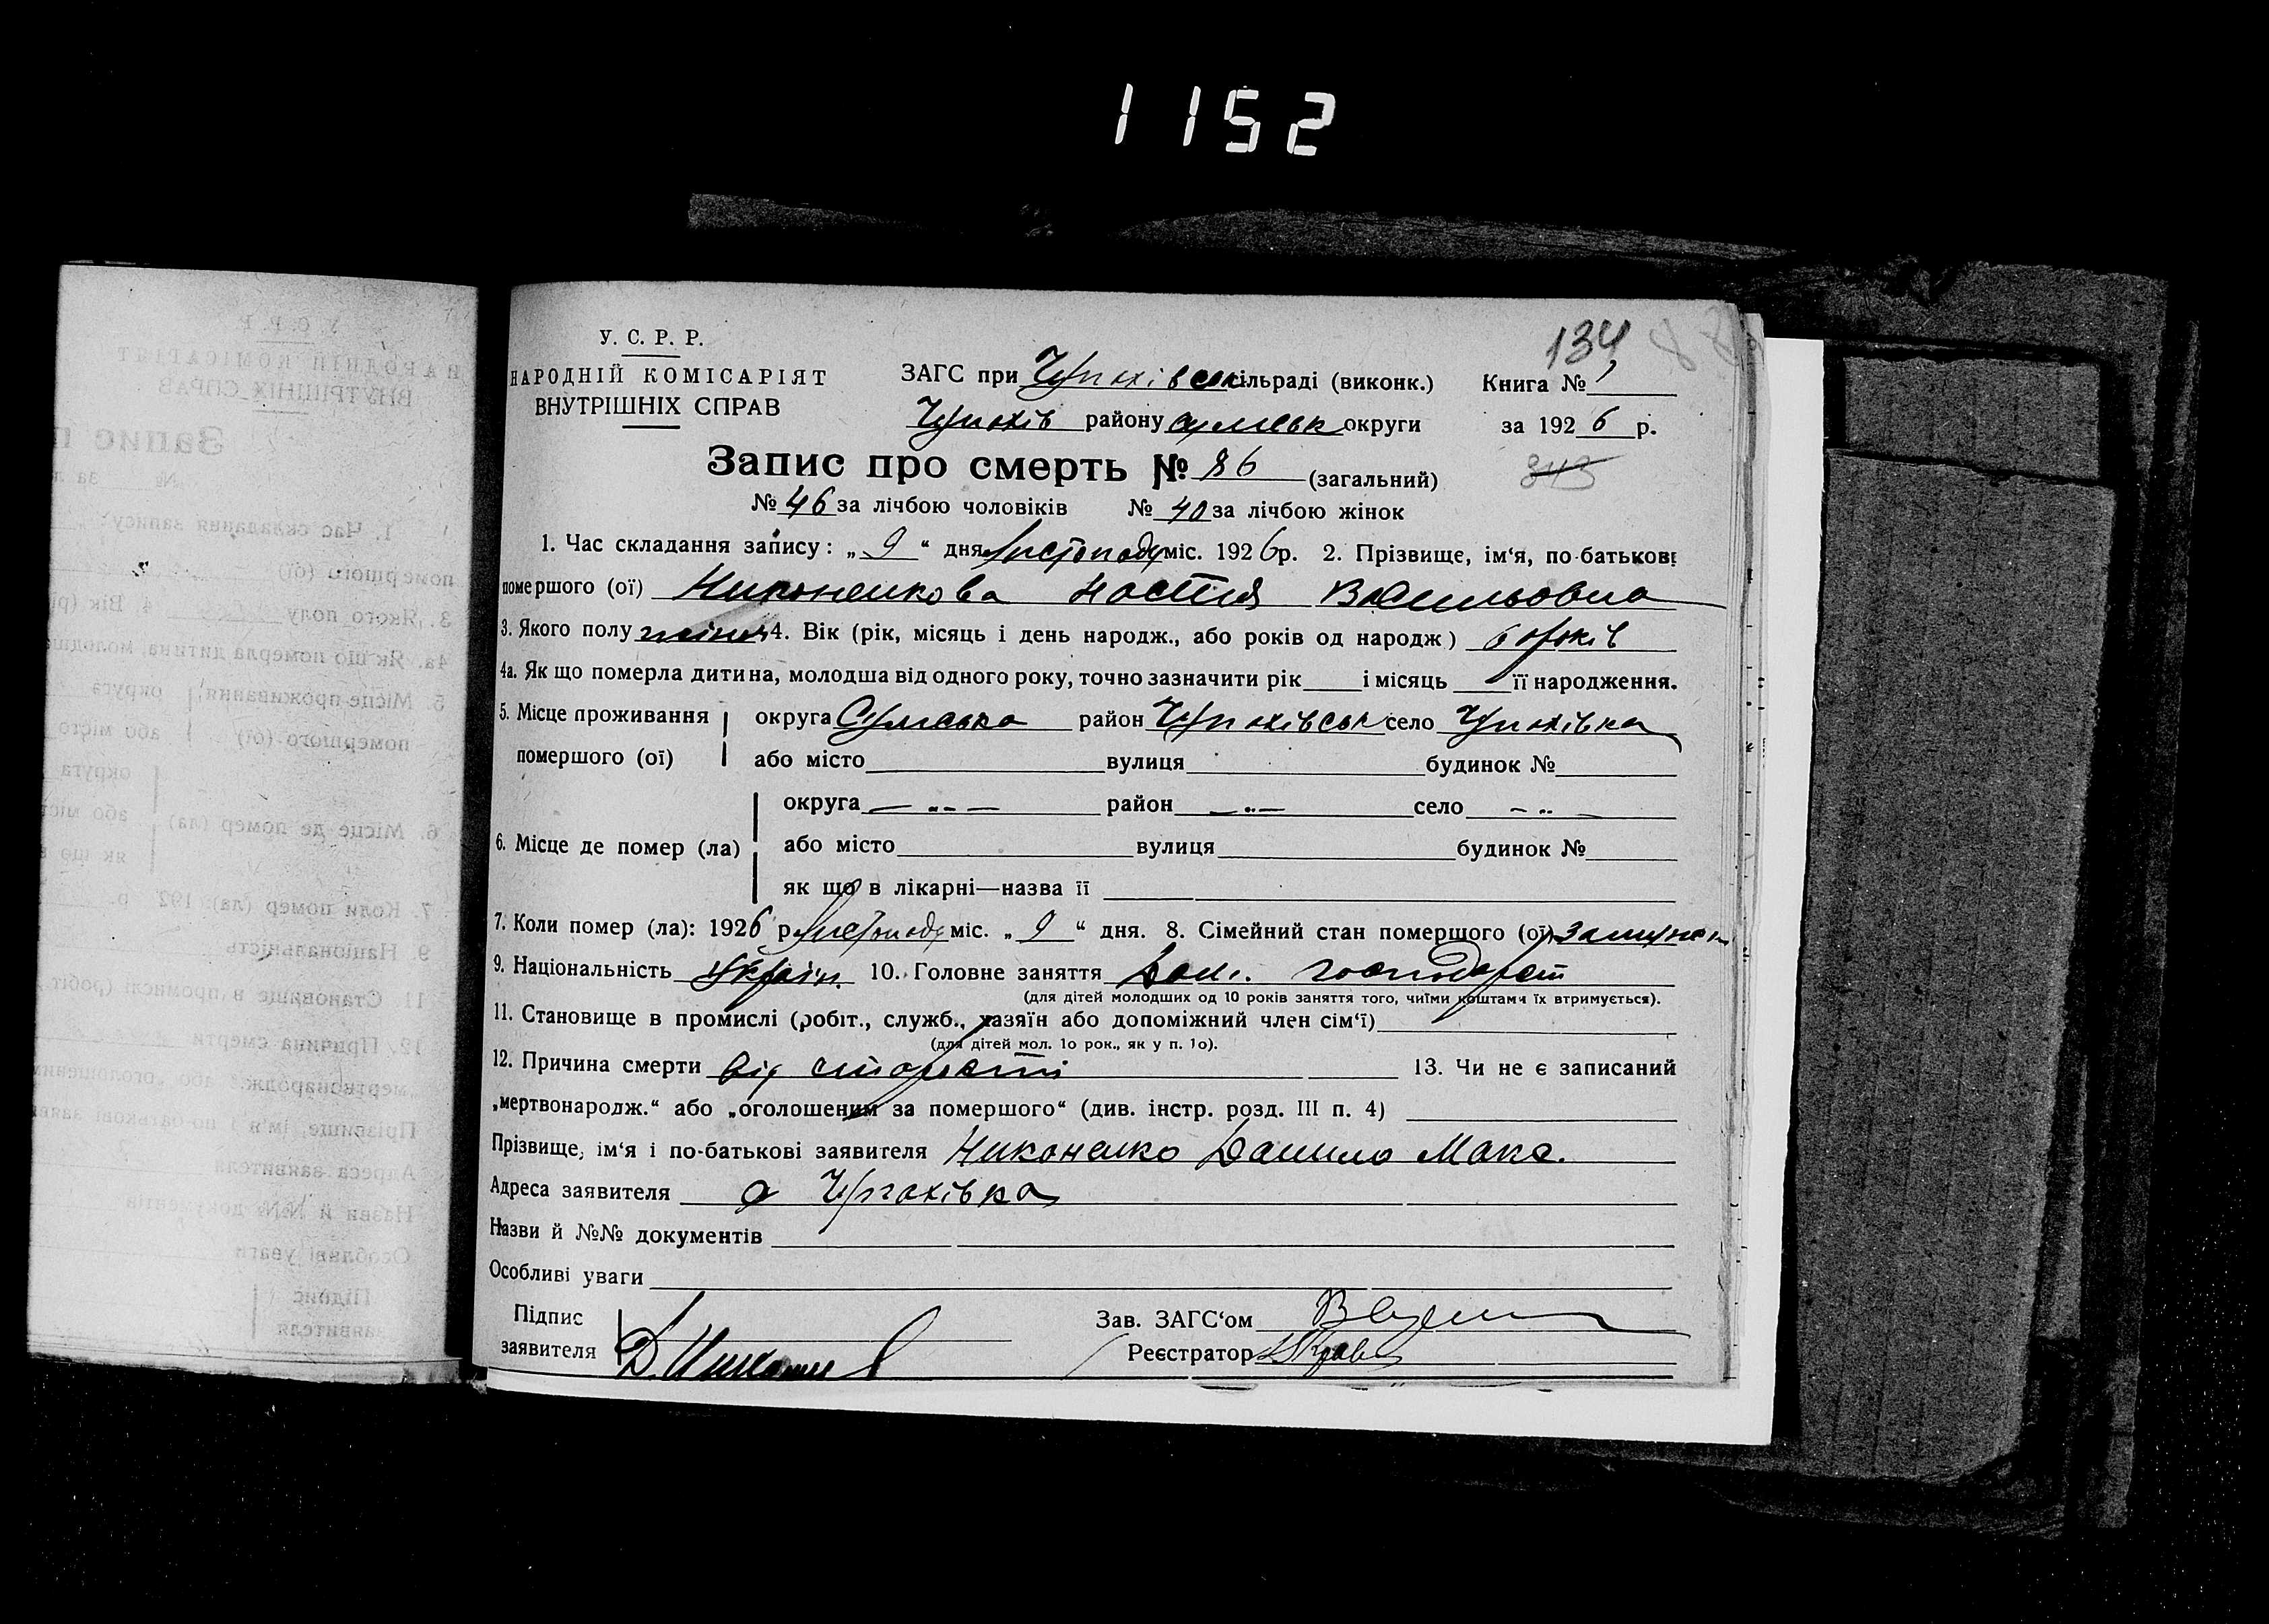 1152
134
У. С. Р. Р.
НАРОДНІЙ КОМІСАРІЯТ
ВНУТРІШНІХ СПРАВ
ЗАГС при Чупахівськ сільраді (виконк.) Книга №
Чупахів району сумськ округи за 1926 р.
Запис про смерть № 86 (загальний)
343
№ 46 за лічбою чоловіків № 40 за лічбою жінок
1. Час складання запису: „ 9 “ дня листопаду міс. 1926 р. 2. Прізвище, ім‘я, по-батькові
помершого (ої) Никоненкова Настя Васильовна
3. Якого полу жіноч 4. Вік (рік, місяць і день народж., або років од народж) років
4а. Як що померла дитина, молодша від одного року, точно зазначити рік і місяць її народження.
5. Місце проживання помершого (ої) округа Сумська район Чупахівськ село Чупахівка
або місто вулиця будинок №
6. Місце де помер (ла) округа — „ — район — „ — село — „ —
або місто вулиця будинок №
як що в лікарні—назва її
7. Коли помер (ла): 1926 р. листопаду міс. „ 9 “ дня. 8. Сімейний стан помершого (ої) замужем
9. Національність Україн. 10. Головне заняття Дом. господарст
(для дітей молодших од 10 років заняття того, чиїми коштами їх втримується).
11. Становище в промислі (робіт., служб., хазяїн або допоміжний член сім‘ї)
(для дітей мол. 1о рок., як у п. 1о).
12. Причина смерти від старости 13. Чи не є записаний
„мертвонародж.“ або „оголошеним за помершого“ (див. інстр. розд. III п. 4)
Прізвище, ім‘я і по-батькові заявителя Никоненко Данило Макс.
Адреса заявителя с Чупахівка
Назви й №№ документів
Особливі уваги
Підпис заявителя
Зав. ЗАГС‘ом
Реєстратор